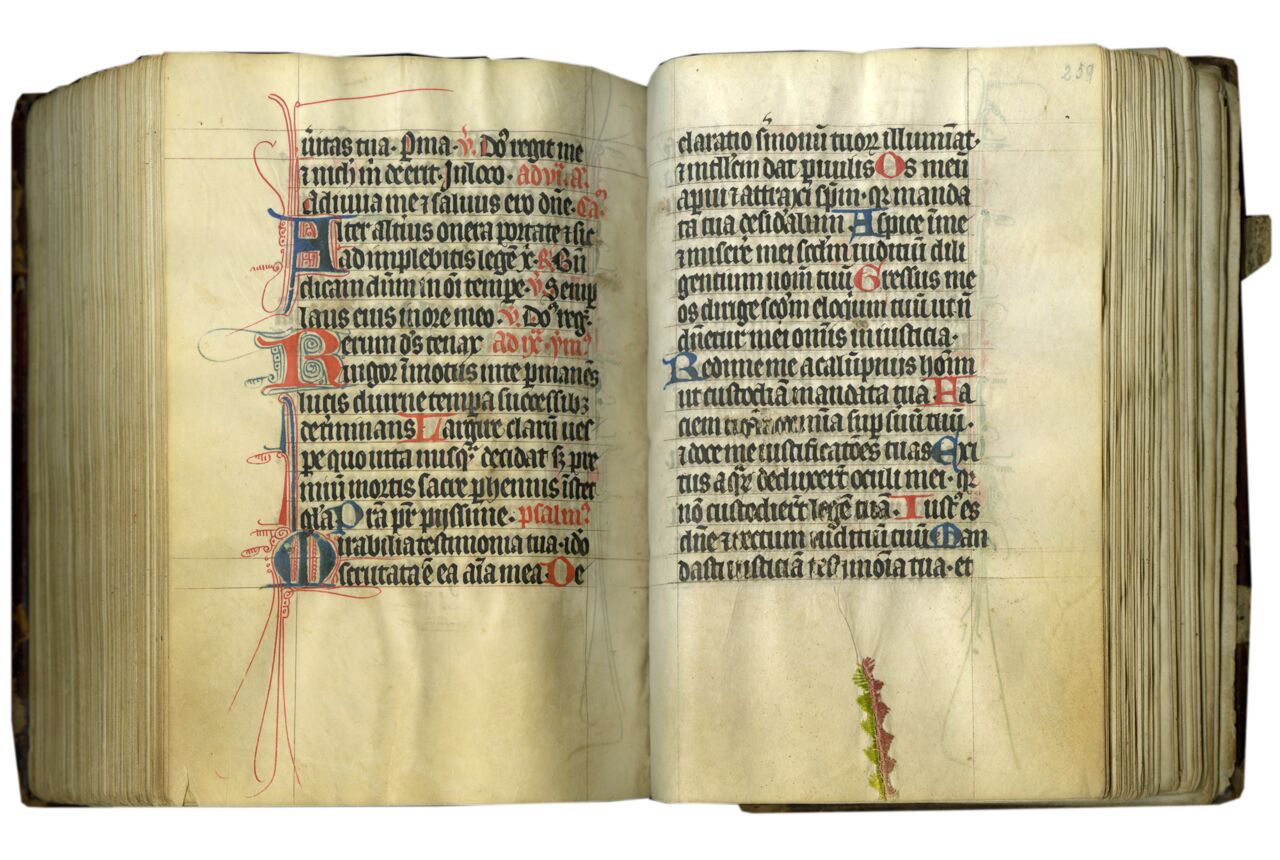 uitas tua. Pma. v̄. Dn̄s regit me
⁊ nich in deerit. Jnloco. ad vi. a.
Adiuua me ⁊ saluus ero dn̄e. Ca.
Alter altius onera portate ⁊ sic
adimplebitis legē x. R. Bn̄
dicam dūm in oī tempe. v̄. Semp
laus eius in ore meo. v̄. Dn̄s reg.
Rerum ds tenax ad ix. ym.
Uingor īmotus in te pmanēs
lucis diurne tempa successibꝫ
determinans Largire clarū ues
pe quo uita nusqᷓ decidat sꝫ pre
miū mortis sacre phennis īstet
gl̄a Prā pr̄ pyssime. psalm.
Mirabilia testimonia tua. ido
scrutata ē ea aīa mea. De
claratio s̄monū tuoꝝ illuminat.
⁊ intellm̄ dat puulis Os meū
apui ⁊ attraxi spm̄. qr manda
ta tua desidabam Aspice ī me
⁊ miserē mei scdm̄ iuditiū dili
gentium nom̄ tuū Gressus me
os dirige scdm̄ eloqium tuū ut n̄
dn̄etur mei omīs iniusticia.
Redime me a calūpniis hoīm
ut custodiā mandata tua Fa
ciem tuā illumina sup suū tuū.
⁊ doce me iustificatōes tuas Exi
tus aqr̄ deduxert̄ oculi mei. qr
nō custodiert̄ legē tuā. Iust es
dn̄e ⁊ rectum iuditiū tuū Man
dasti iusticiā testimoīa tua. et
259